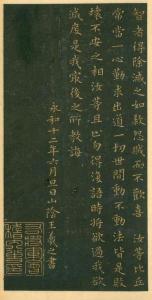 智者得除滅之如殺怨賊而不歡喜 汝等比丘
常當一心勤求出道一切世間動不動法皆是敗
壞不安之相汝等且止勿得復語時將欲過我欲
滅度是我最後之所教誨
永和十二年六月旦日山陰王羲之書